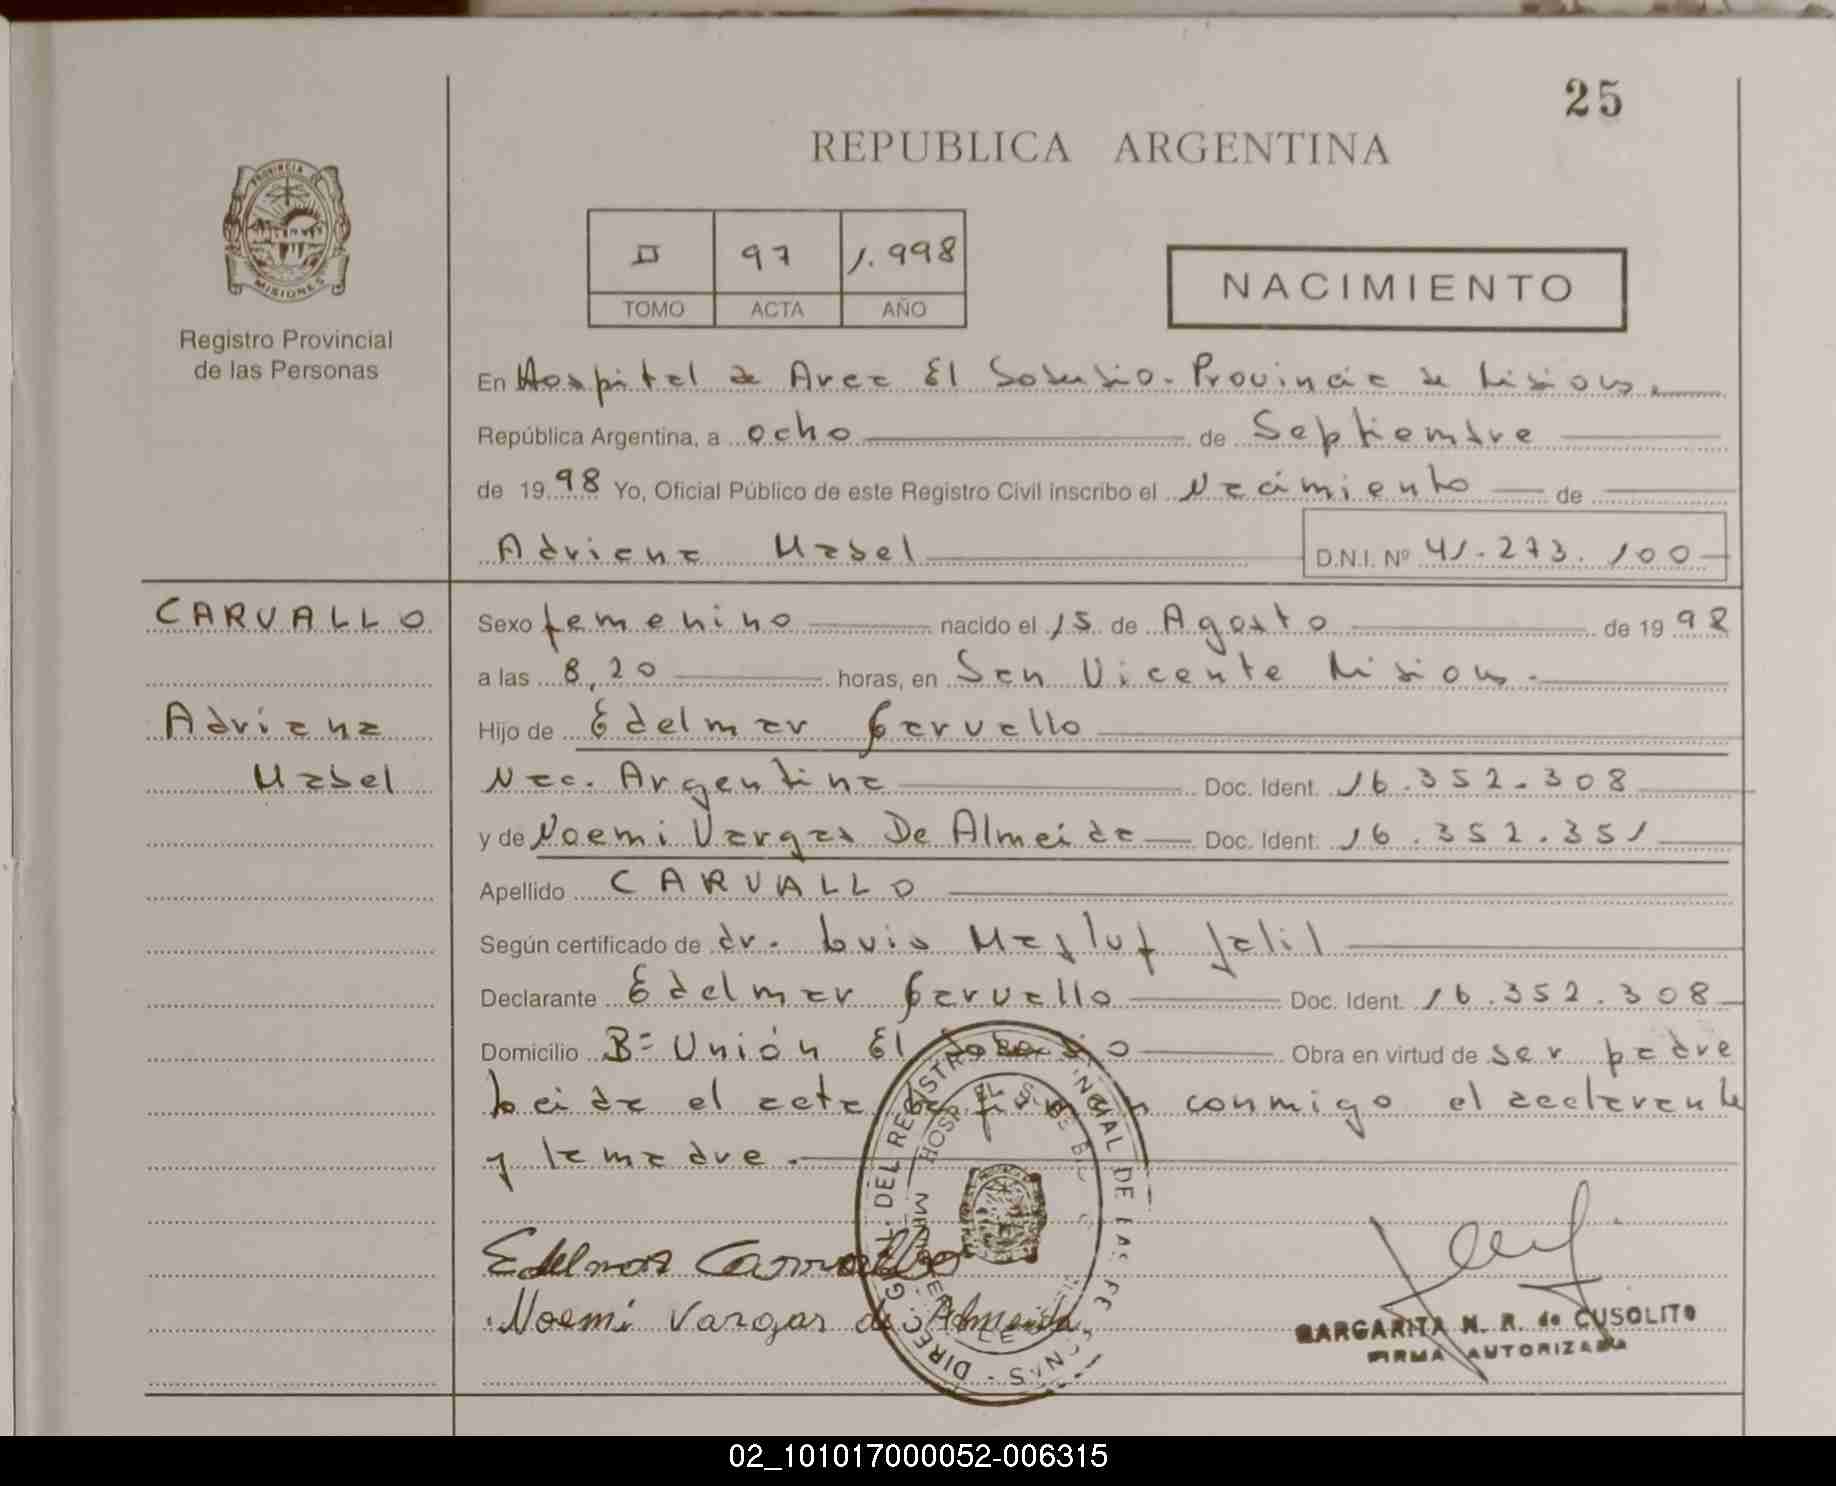 25
REPUBLICA ARGENTINA
PROVINCIA DE
MISIONES
Registro Provincial
de las Personas
II 97 1.998
TOMO ACTA AÑO
NACIMIENTO
En Hospital de Area El Soberbio. Provincia de Misiones.
República Argentina, a ocho de Septiembre
de 19 98 Yo, Oficial Público de este Registro Civil inscribo el Nacimiento de
Adriana Mabel D.N.I. Nº 41.273.100
CARVALLO
Adriana
Mabel
Sexo femenino nacido el 15 de Agosto de 19 98
a las 8,20 horas, en San Vicente Misiones.
Hijo de Edelmar Carvallo
Nac. Argentina Doc. Ident. 16.352.308
y de Noemi Vargas De Almeida Doc. Ident. 16.352.351
Apellido CARVALLO
Según certificado de dr. Luis Maj luf Jalil
Declarante Edelmar Carvallo Doc. Ident. 16.352.308
Domicilio Bº Unión El Soberbio Obra en virtud de ser padre
Leida el acta la firman conmigo el declarante
y la madre.
Edelmar Carvallo
Noemi Vargas de Almeida
MARGARITA N. R. de CUSOLITO
FIRMA AUTORIZADA
02_101017000052-006315